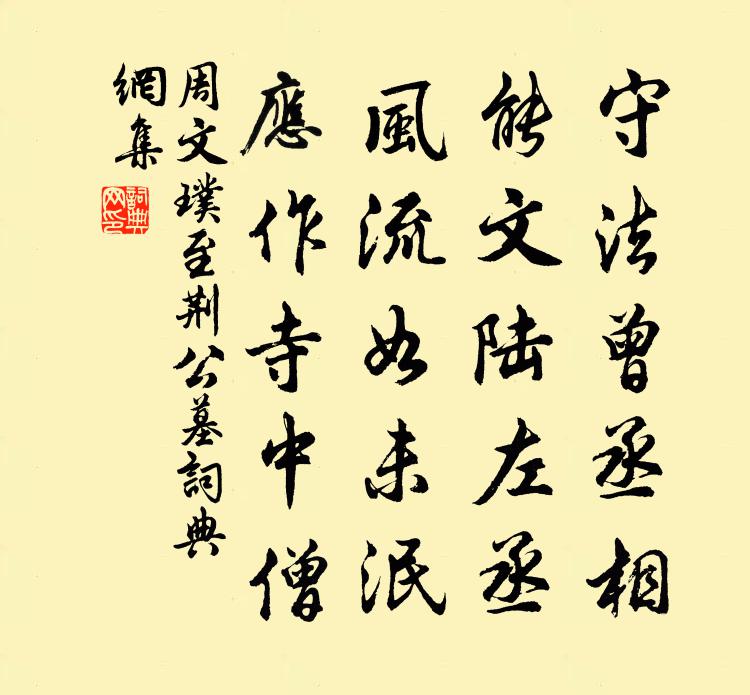 守法曾丞相
能文陆左丞
風流如未泯
應作寺中僧
周文璞至荆公墓詞典
網集
詞典
网印